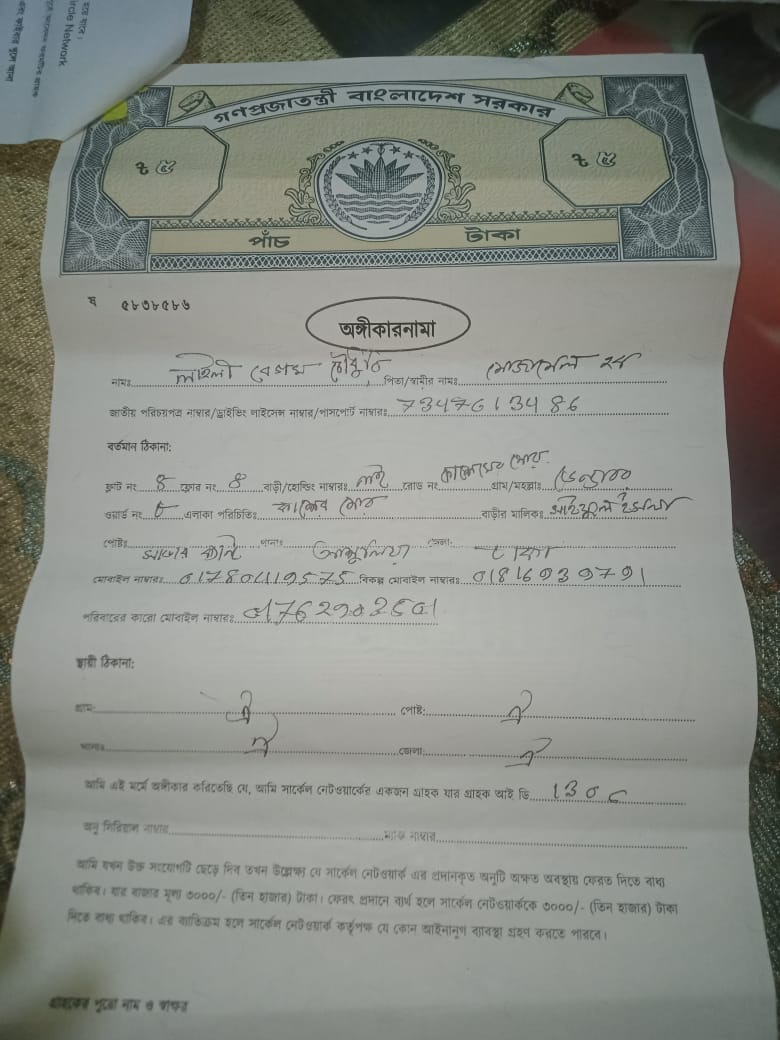 Circle Network
গণপ্রজাতন্ত্রী বাংলাদেশ সরকার
৳ ৫ ৳ ৫
পাঁচ টাকা
ষ ৫৮৩৮৫৮৬
অঙ্গীকারনামা
নামঃ লাইলী বেগম চৌধুরি পিতা/স্বামীর নামঃ মোজাম্মেল হক
জাতীয় পরিচয়পত্র নাম্বার/ড্রাইভিং লাইসেন্স নাম্বার/পাসপোর্ট নাম্বারঃ 7347613486
বর্তমান ঠিকানা:
ফ্লাট নং 8 ফ্লোর নং 8 বাড়ী/হোল্ডিং নাম্বারঃ নাই রোড নং গ্রাম/মহল্লাঃ
ওয়ার্ড নং এলাকা পরিচিতিঃ বাড়ীর মালিকঃ
পোষ্টঃ থানাঃ আশুলিয়া জেলা: ঢাকা
মোবাইল নাম্বারঃ বিকল্প মোবাইল নাম্বারঃ 01816939791
পরিবারের কারো মোবাইল নাম্বারঃ
স্থায়ী ঠিকানা:
গ্রাম: ঐ পোষ্ট: ঐ
থানাঃ ঐ জেলা: ঐ
আমি এই মর্মে অঙ্গীকার করিতেছি যে, আমি সার্কেল নেটওয়ার্কের একজন গ্রাহক যার গ্রাহক আই ডি
অনু সিরিয়াল নাম্বার ম্যাক নাম্বার
আমি যখন উক্ত সংযোগটি ছেড়ে দিব তখন উল্লেখ্য যে সার্কেল নেটওয়ার্ক এর প্রদানকৃত অনুটি অক্ষত অবস্থায় ফেরত দিতে বাধ্য
থাকিব। যার বাজার মূল্য ৩০০০/- (তিন হাজার) টাকা। ফেরৎ প্রদানে ব্যর্থ হলে সার্কেল নেটওয়ার্ককে ৩০০০/- (তিন হাজার) টাকা
দিতে বাধ্য থাকিব। এর ব্যতিক্রম হলে সার্কেল নেটওয়ার্ক কর্তৃপক্ষ যে কোন আইনানুগ ব্যবস্থা গ্রহণ করতে পারবে।
গ্রাহকের পুরো নাম ও স্বাক্ষর